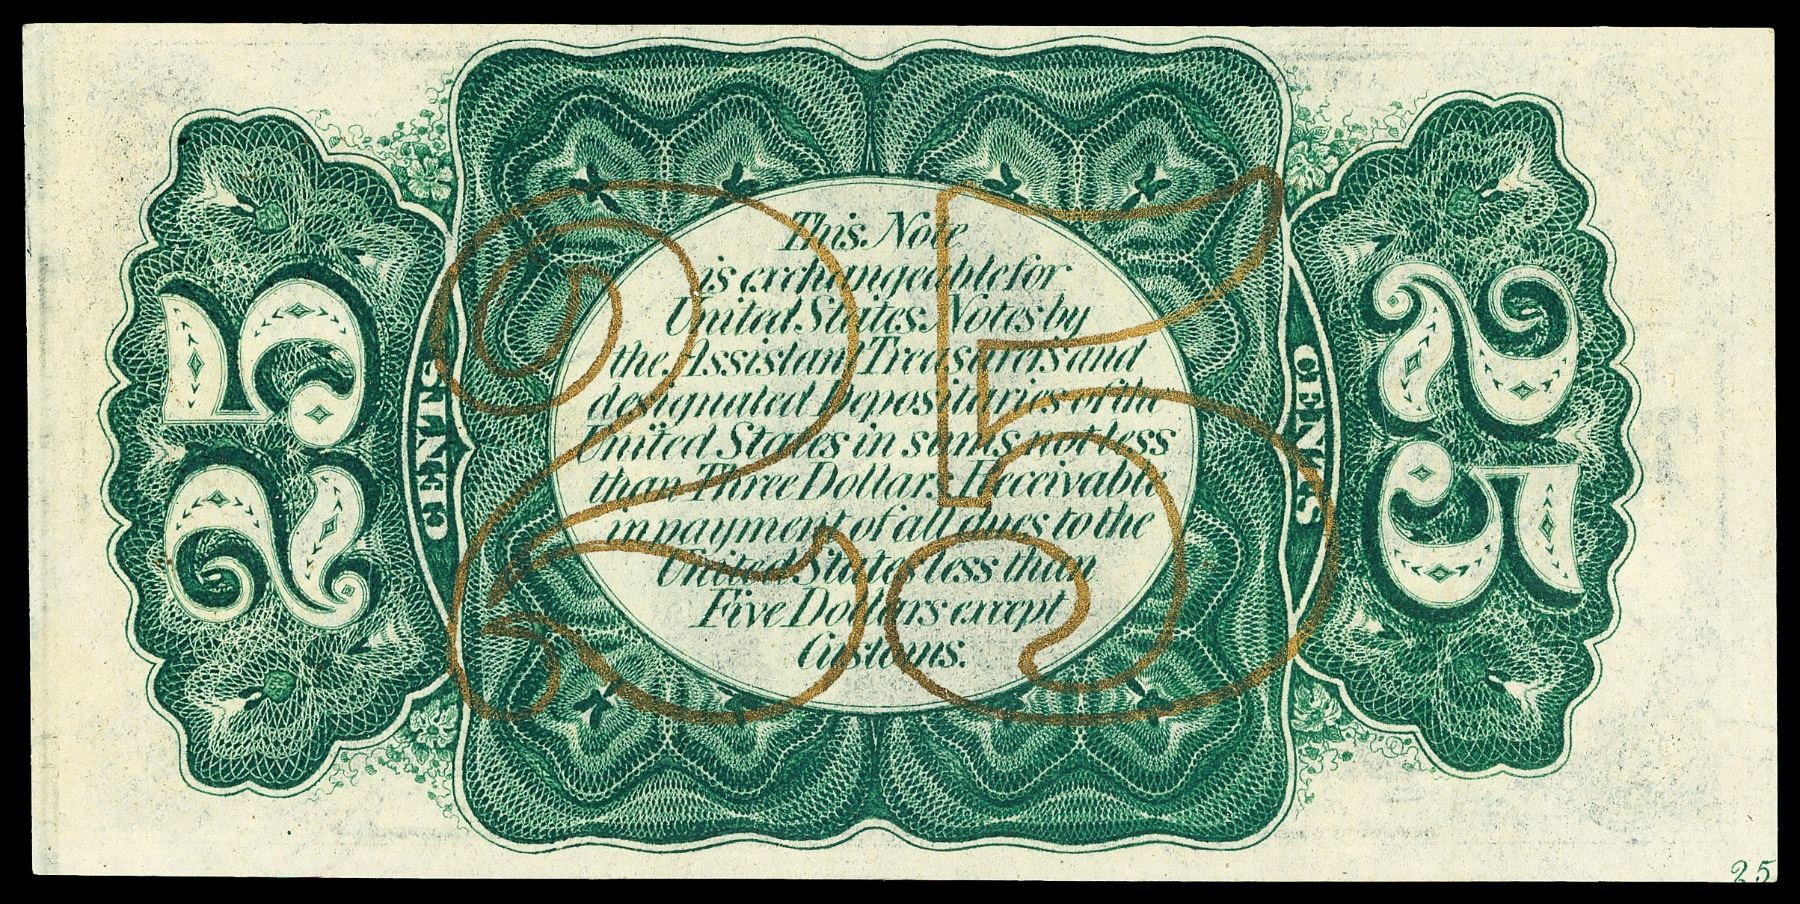 This Note
is exchangeable for
United States Notes by
the Assistant Treasurers and
designated Depositaries of the
United States in sums not less
than Three Dollars. Receivable
in payment of all dues to the
United States less than
Five Dollars except
Customs.
25
25
CENTS
25
CENTS
25
25